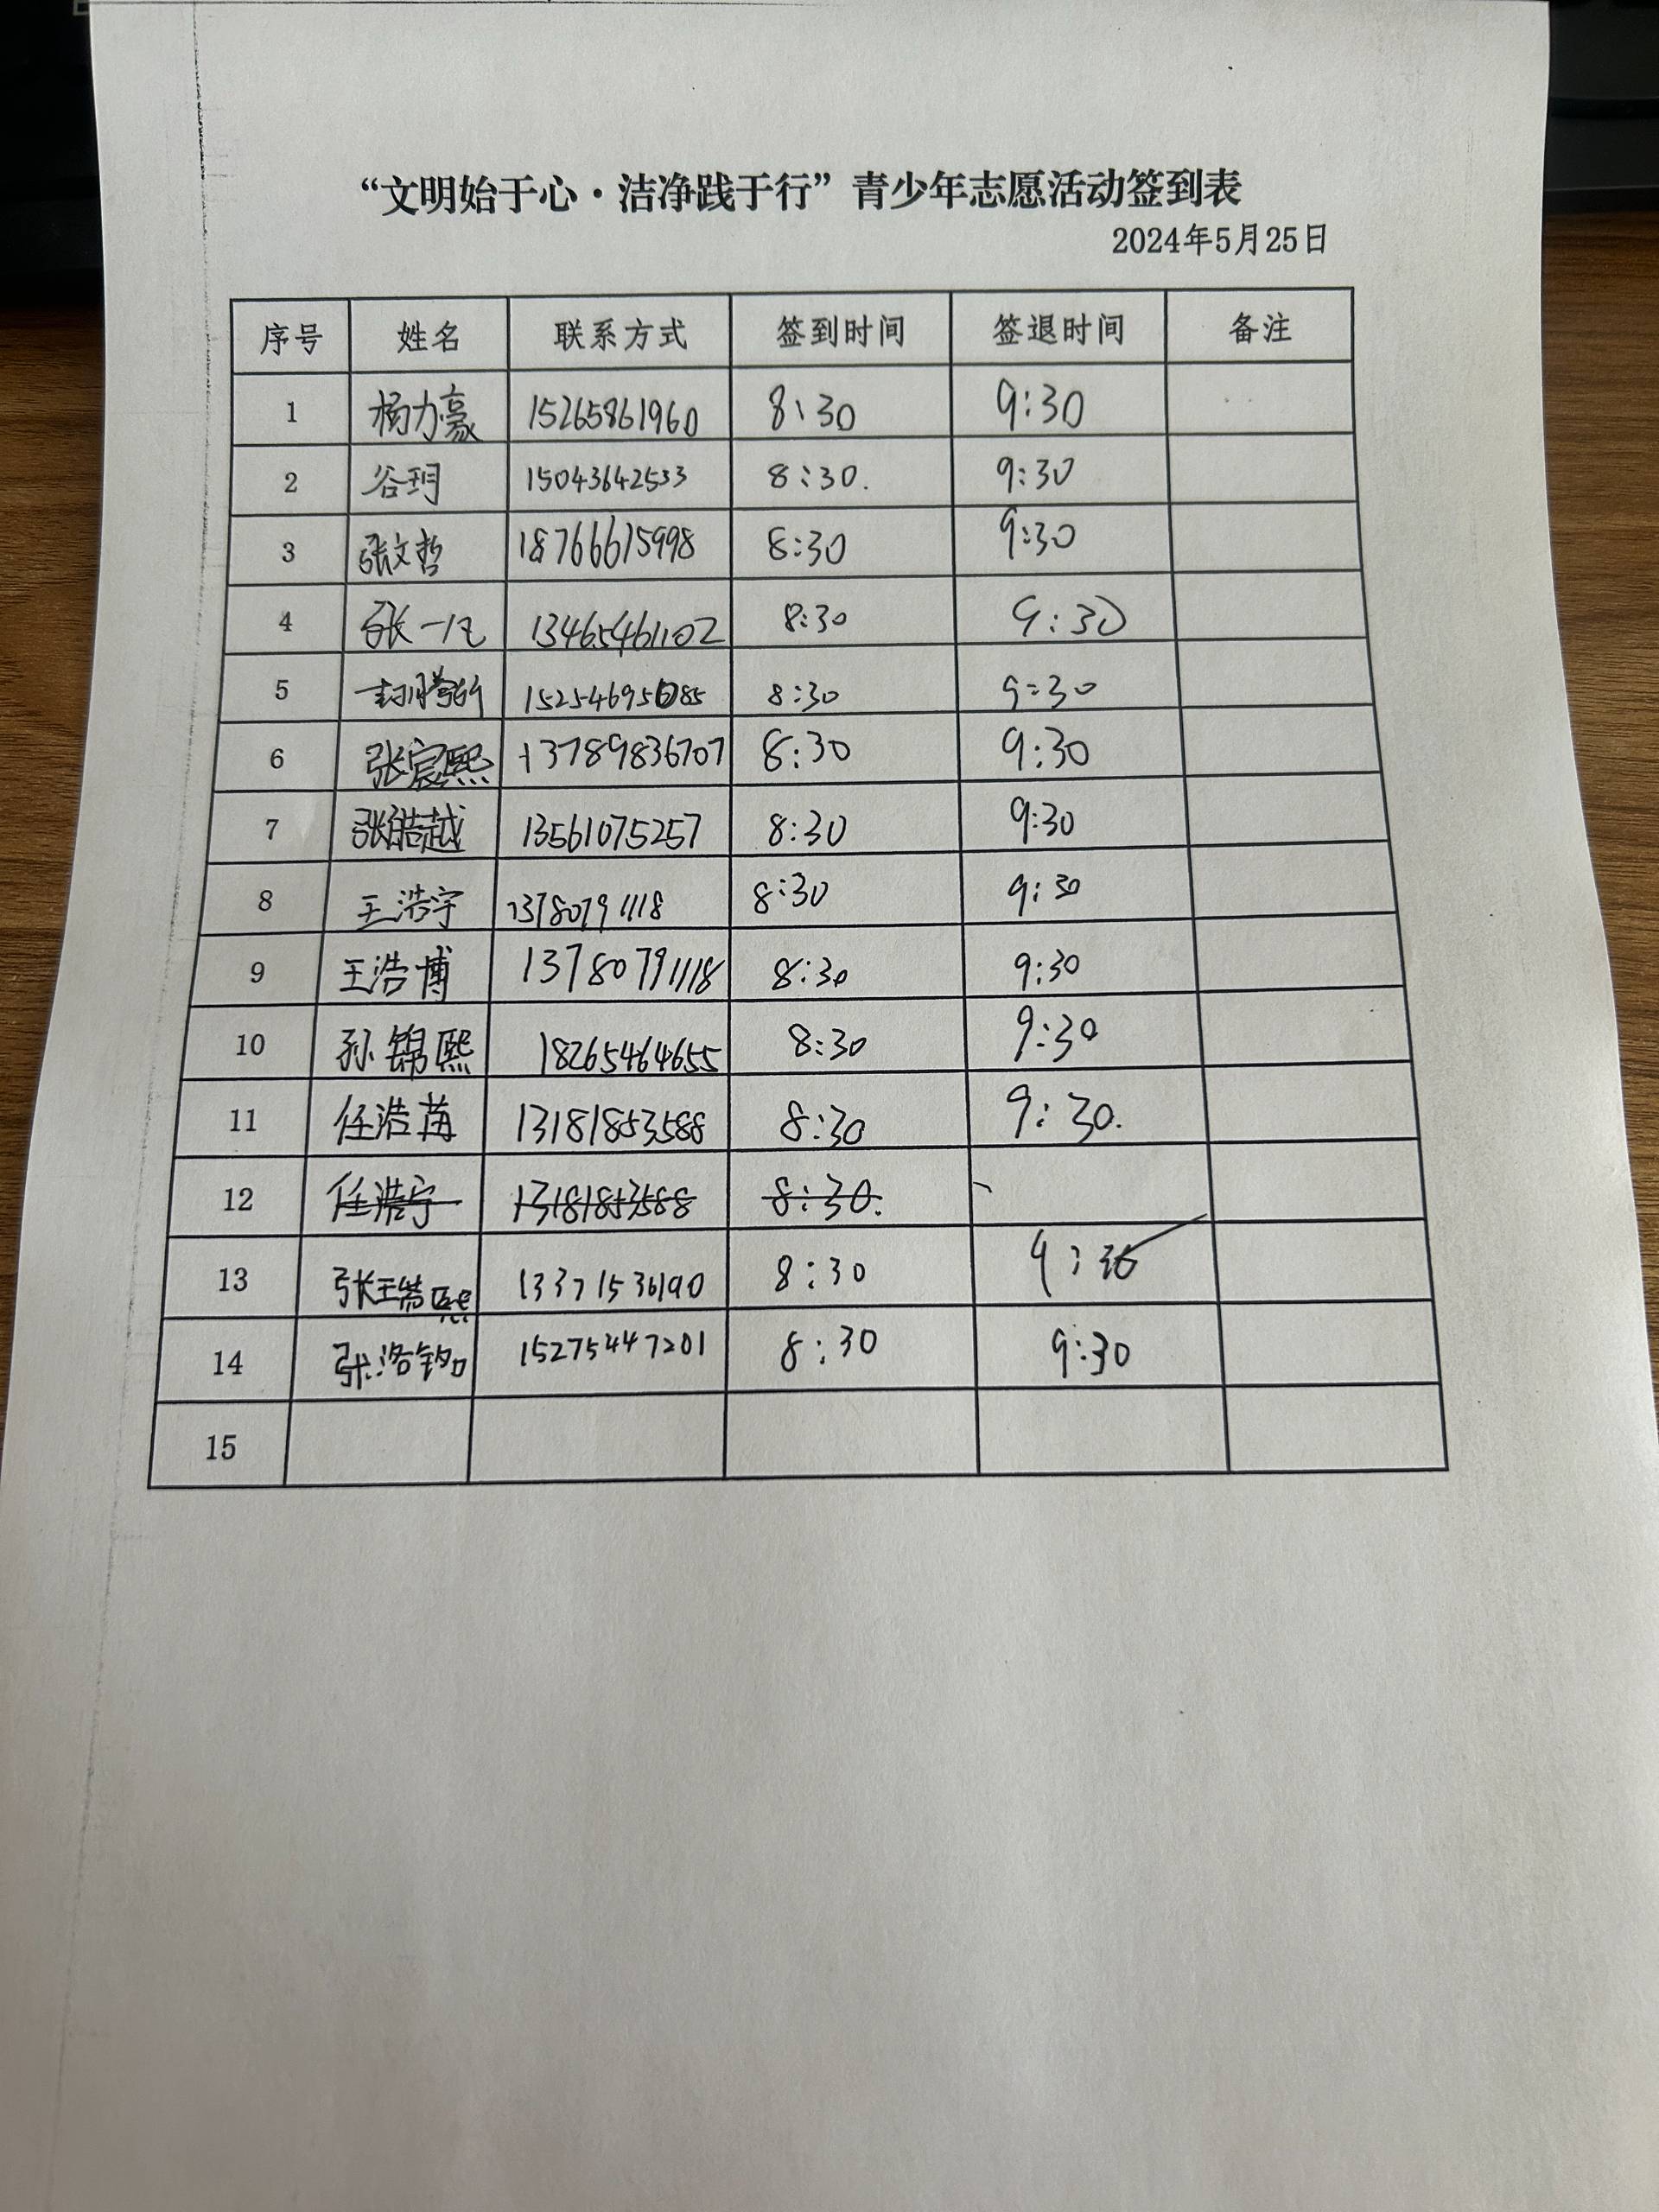 “文明始于心·洁净践于行”青少年志愿活动签到表
2024年5月25日
序号 姓名 联系方式 签到时间 签退时间 备注
1 杨力豪 15265861960 8:30 9:30
2 谷玥 15043642533 8:30. 9:30
3 张文哲 18766615998 8:30 9:30
4 张一凡 13465461102 8:30 9:30
5 8:30 9:30
6 张宸熙 13789836707 8:30 9:30
7 张皓越 13561075257 8:30 9:30
8 王浩宇 13780791118 8:30 9:30
9 王浩博 13780791118 8:30 9:30
10 孙锦熙 18265464655 8:30 9:30
11 任浩苒 13181853588 8:30 9:30.
12 任浩宇 13181853588 8:30.
13 13371536190 8:30 9:30
14 张洛铭 15275447201 8:30 9:30
15